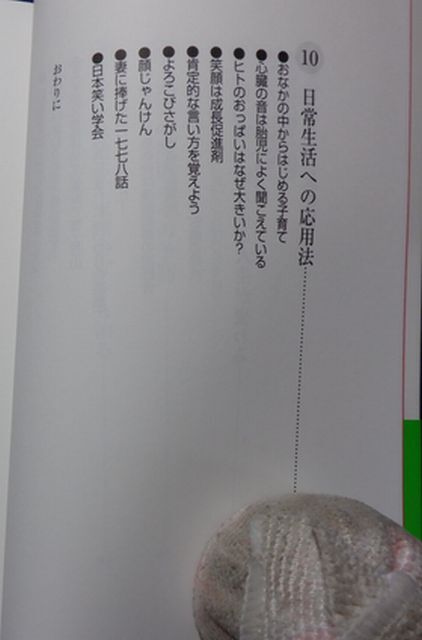 10 日常生活への応用法
●おなかの中からはじめる子育て
●心臓の音は胎児によく聞こえている
●ヒトのおっぱいはなぜ大きいか?
●笑顔は成長促進剤
●肯定的な言い方を覚えよう
●よろこびさがし
●顔じゃんけん
●妻に捧げた一七七八話
●日本笑い学会
おわりに